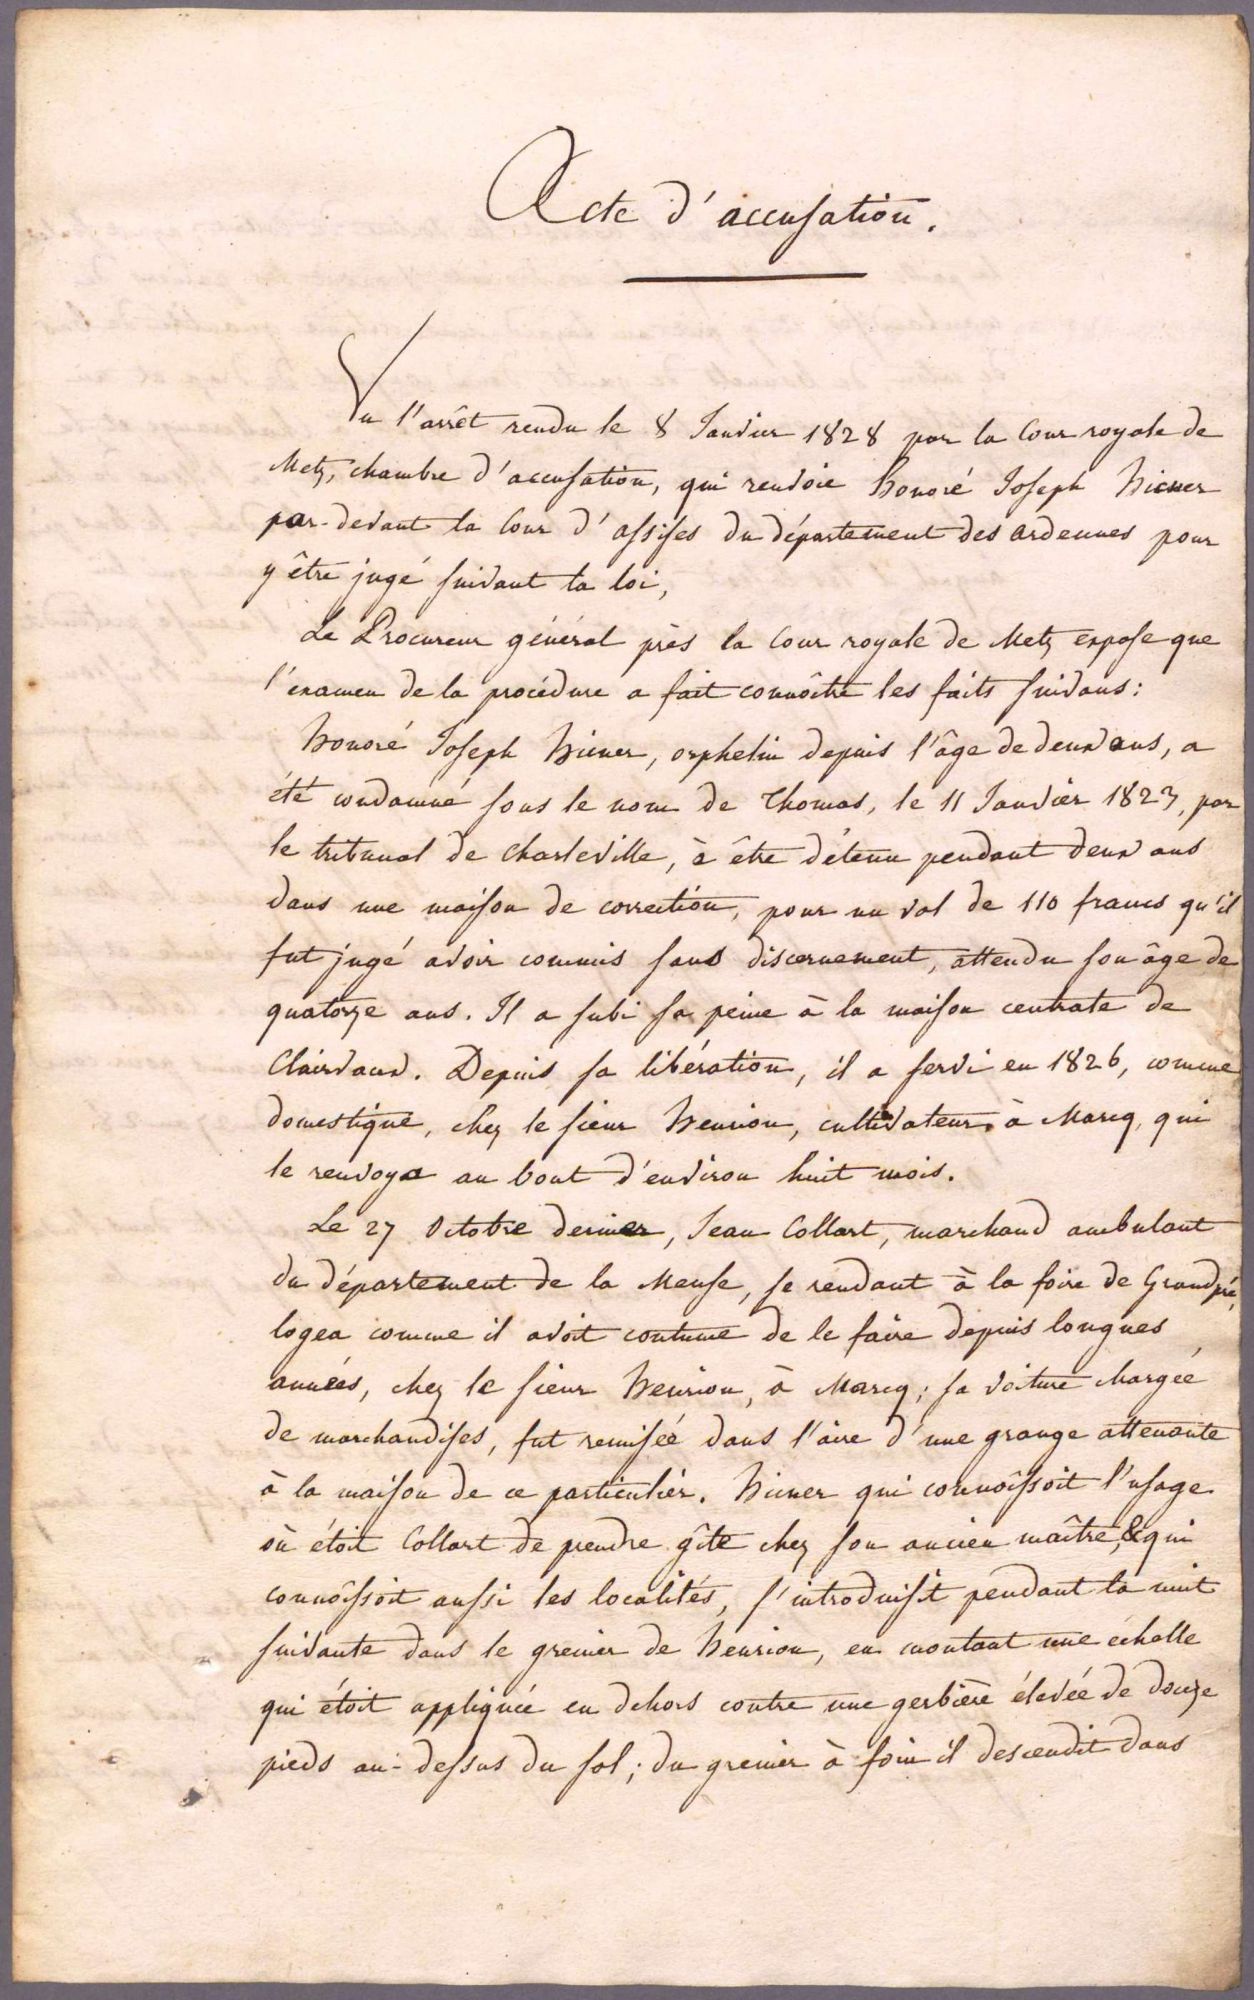 Acte d'accusation.
Vu l'arrêt rendu le 8 Janvier 1828 par la Cour royale de
Metz, chambre d'accusation, qui renvoie honoré Joseph hiener
par-devant la Cour d'assises du département des ardennes pour
y être jugé suivant la loi,
Le Procureur général près la Cour royale de Metz expose que
l'examen de la procédure a fait connoître les faits suivans :
honoré Joseph hiener, orphelin depuis l'âge de deux ans, a
été condamné sous le nom de Thomas, le 11 Janvier 1823, par
le tribunal de Charleville, à être détenu pendant deux ans
dans une maison de correction, pour un vol de 110 francs qu'il
fut jugé avoir commis sans discernement, attendu son âge de
quatorze ans. Il a subi sa peine à la maison centrale de
Clairvaux. Depuis sa libération, il a servi en 1826, comme
domestique, chez le sieur henrion, cultivateur à Marcq, qui
le renvoya au bout d'environ huit mois.
Le 27 Octobre dernier, Jean Collart, marchand ambulant
du département de la Meuse, se rendant à la foire de Grandpré,
logea comme il avoit coutume de le faire depuis longues
années, chez le sieur henrion, à Marcq ; sa voiture chargée
de marchandises, fut remisée dans l'aire d'une grange attenante
à la maison de ce particulier. hiener qui connoissoit l'usage
où étoit Collart de prendre gîte chez son ancien maître, & qui
connoissoit aussi les localités, s'introduisit pendant la nuit
suivante dans le grenier de henrion, en montant une échelle
qui étoit appliquée en dehors contre une gerbière élevée de douze
pieds au-dessus du sol ; du grenier à foin il descendit dans